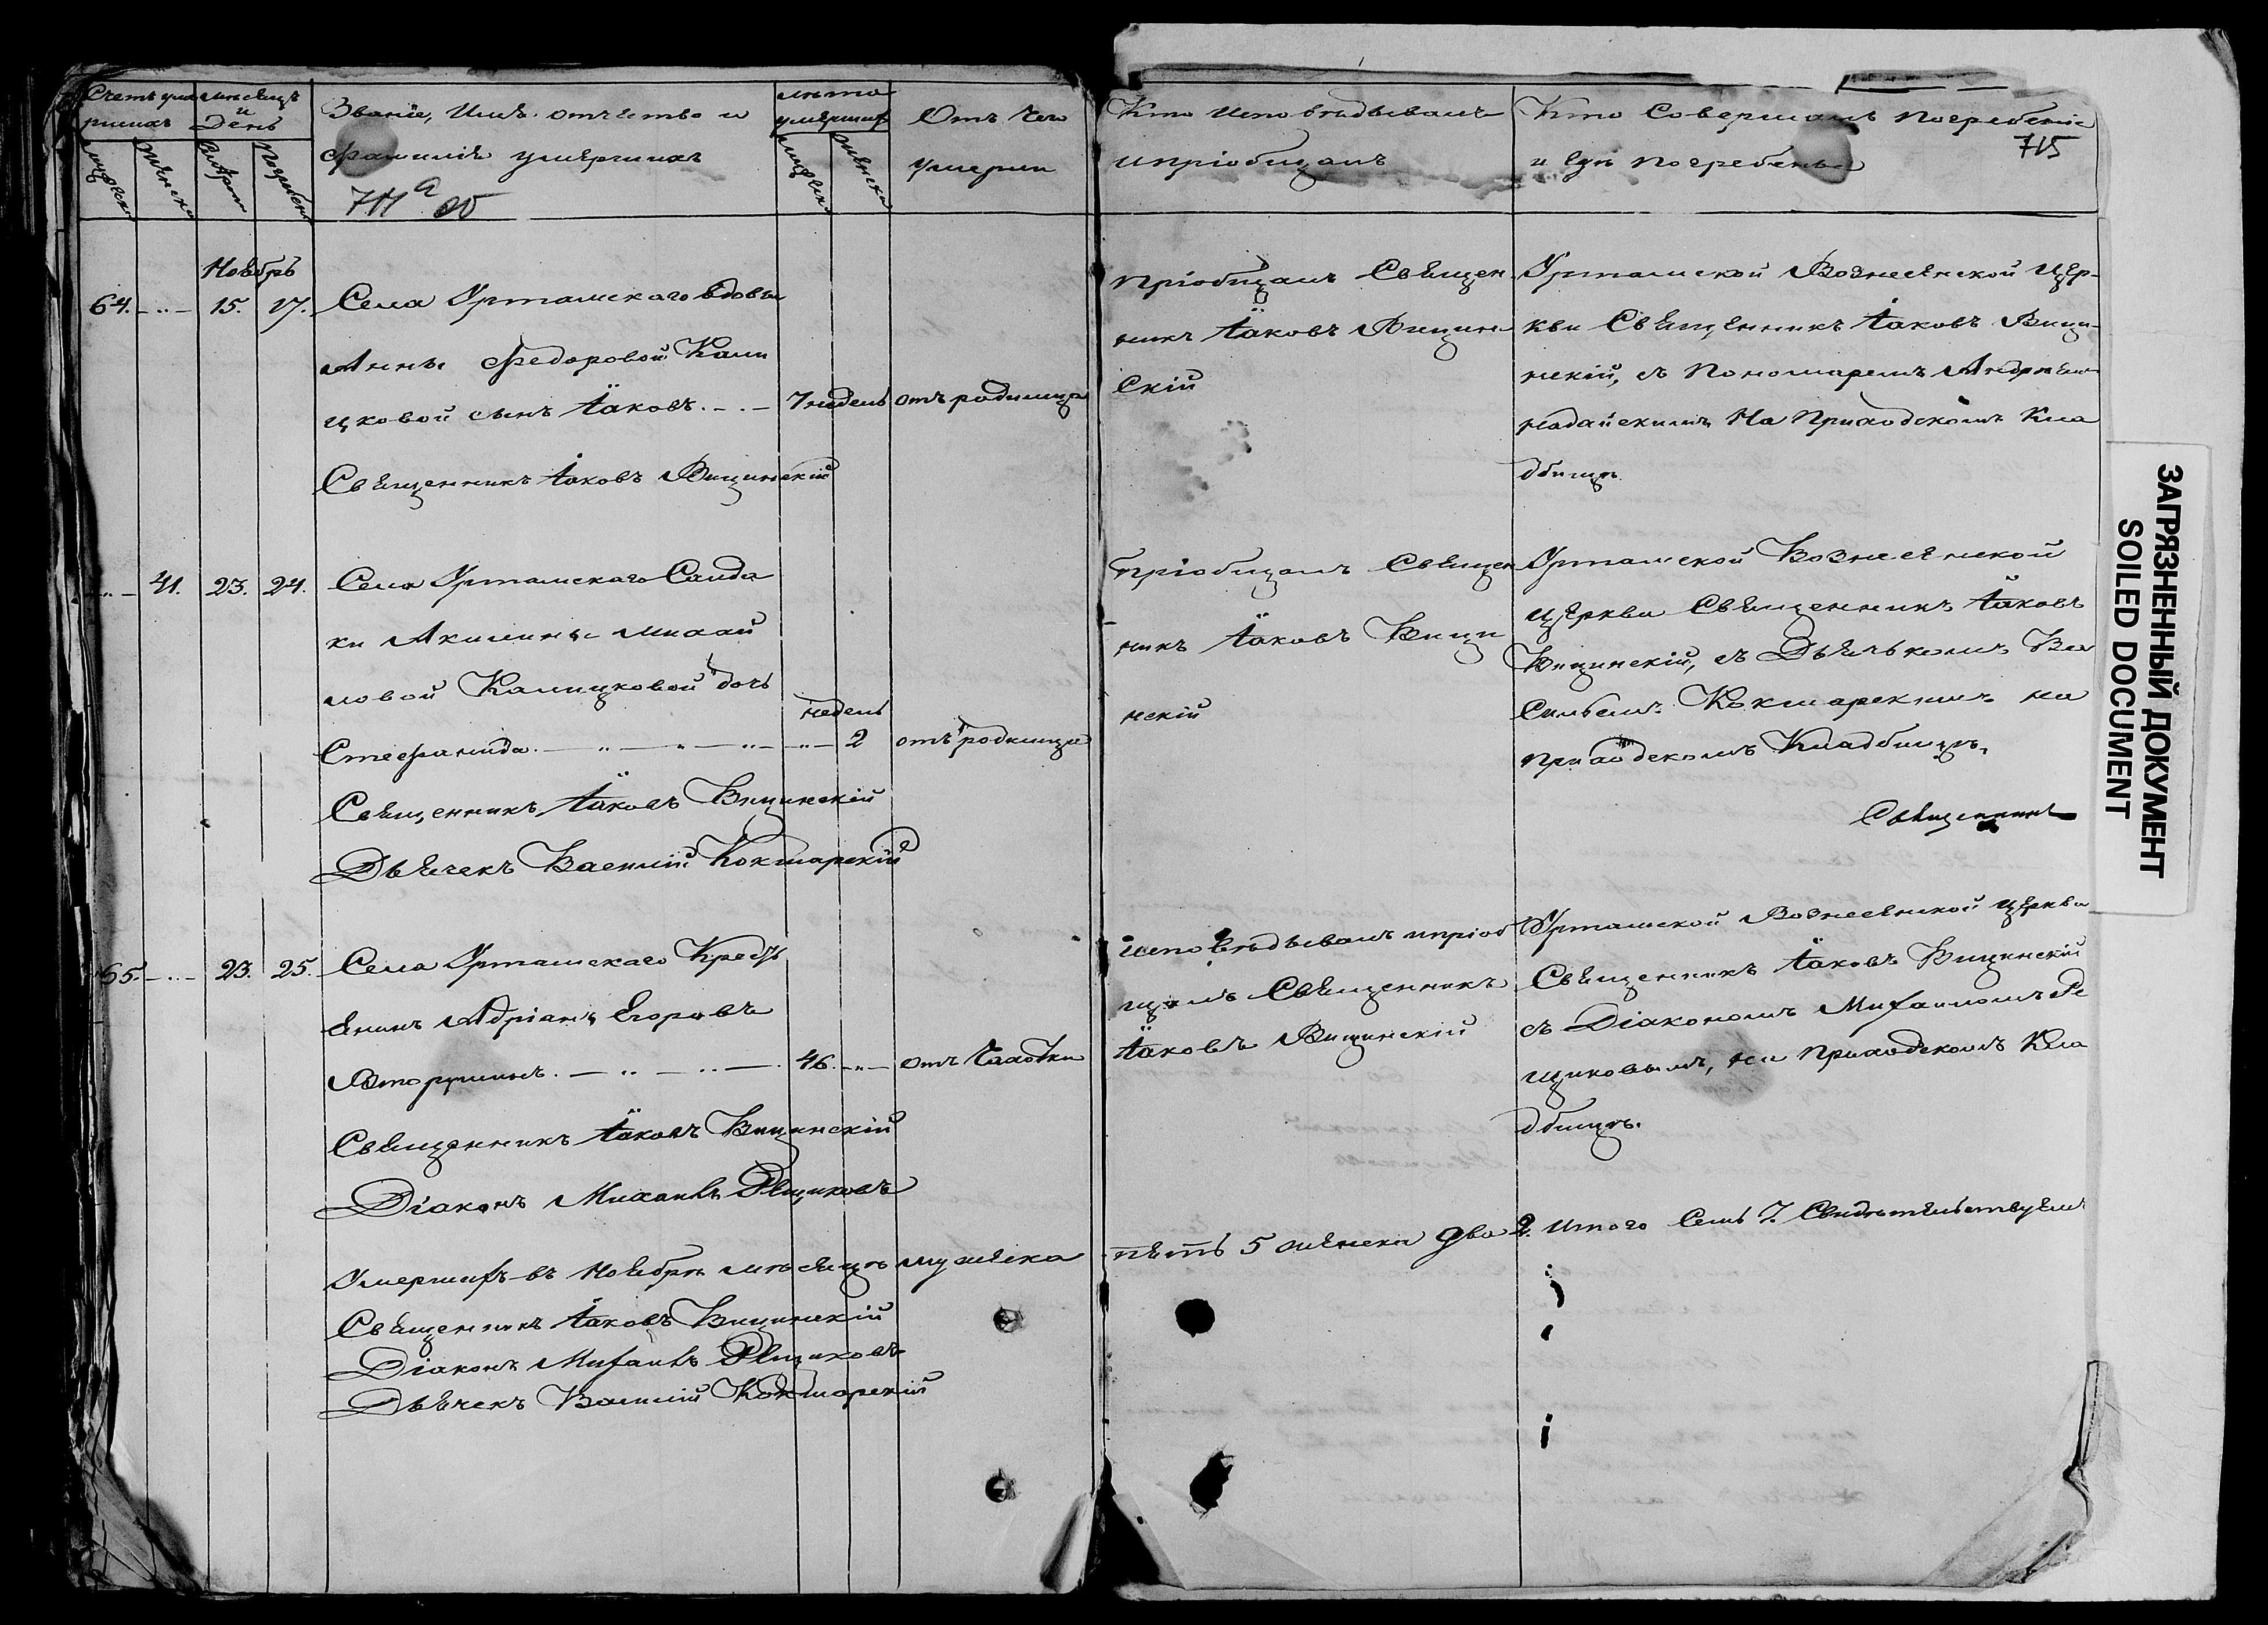 Счетъ уме
ршихъ
Мѣсяцъ
и
День
Званіе, Имя, отчество и
фамилія умершихъ
лѣта
умершихъ
Отъ чего
умерли
Кто исповѣдывалъ
и пріобщалъ
Кто Совершалъ погребеніе
и гдѣ погребены
715
Ноябрь
64. 15. 17. Села Уртамскаго вдовы
Анны Федоровой Кали
цковой сынъ Іаковъ. 7 недель отъ родимца
Священникъ Іаковъ Вицинскій
Пріобщалъ Священ
никъ Іаковъ Вицин
Скій
Уртамской Вознесенской цер-
кви Священникъ Іаковъ Вици-
нскій, съ Пономаремъ
На Приходскомъ Кла
дбищѣ.
41. 23. 24. Села Уртамскаго Солда
ки Акилины Михай
ловой Калицковой дочь
недель
Стефанида. 2 отъ родимца
Священникъ Іаковъ Вицинскій
Дьячекъ Василій Кокшарскій
Пріобщалъ Священ
никъ Іаковъ Вици
нскій
Уртамской Вознесенской
церкви Священникъ Іаковъ
Вицинскій, съ Дьячькомъ Ва
сильемъ Кокшарскимъ на
приходскомъ Кладбищѣ.
Священникъ
65. 23. 25. Села Уртамскаго Кресть
янинъ Адріанъ Егоровъ
Вторушинъ. 46. отъ Чахотки
Священникъ Іаковъ Вицинскій
Діаконъ Михаилъ Рещиковъ
Исповѣдывалъ и пріоб
щалъ Священникъ
Іаковъ Вицинскій
Уртамской Вознесенской церкви
Священникъ Іаковъ Вицинскій
съ Діакономъ Михаиломъ Ре
щиковымъ, на Приходскомъ Кла
дбищѣ.
Умершихъ въ Ноябрѣ мѣсяцѣ мужеска пять 5 женска два 2. Итого Семь 7. Свидѣтельствуемъ
Священникъ Іаковъ Вицинскій
Діаконъ Михаилъ Рещиковъ
Дьячекъ Василій Кокшарскій
ЗАГРЯЗНЕННЫЙ ДОКУМЕНТ
SOILED DOCUMENT